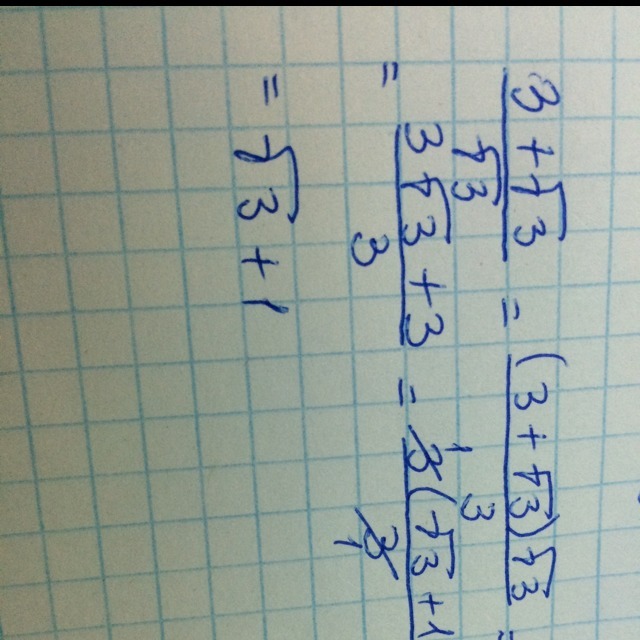 (3+√3)/√3 = ((3+√3)√3)/3 =
= (3√3+3)/3 = (3(√3+1)/3
= √3+1